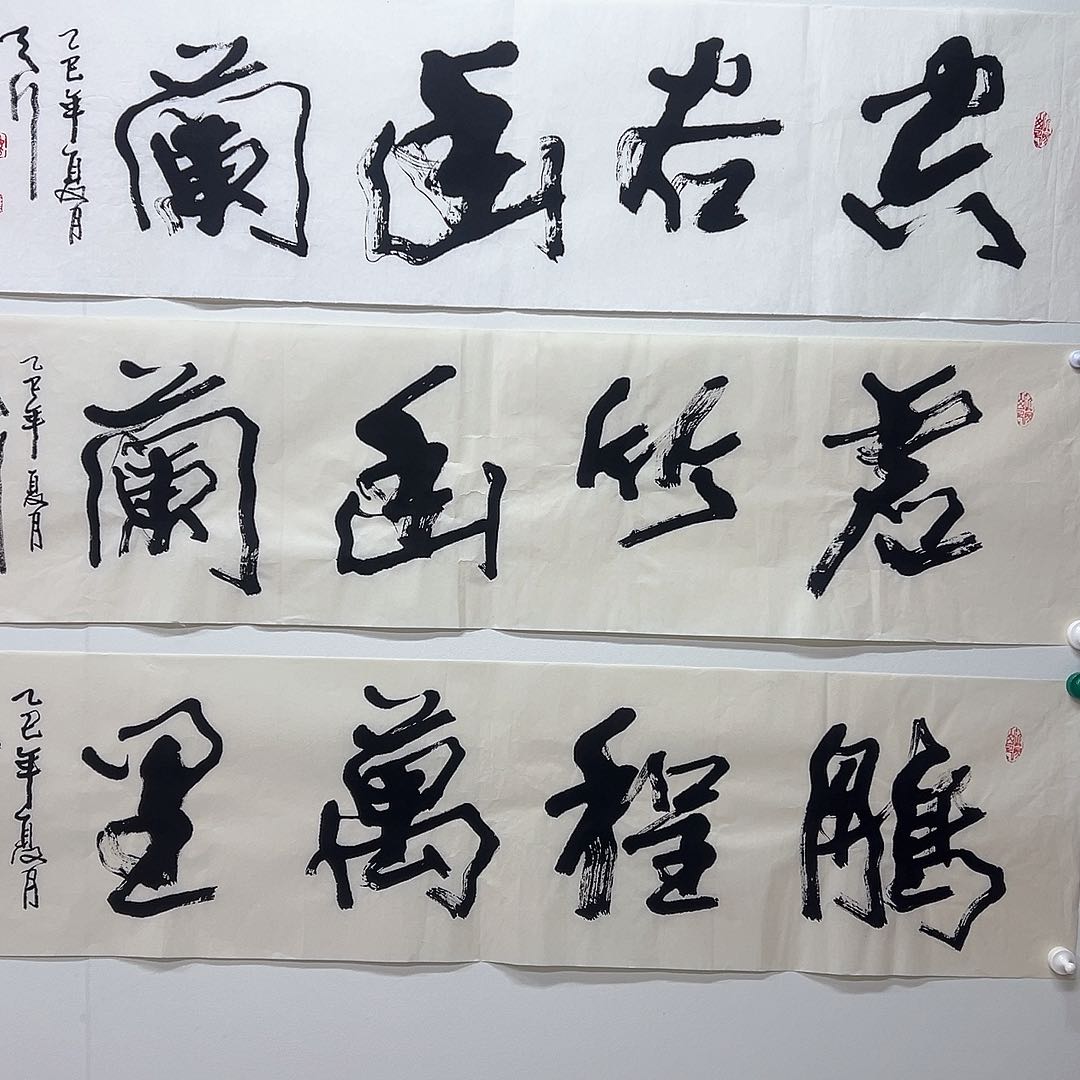 空谷幽蘭
乙巳年夏月
虛竹幽蘭
乙巳年夏月
鵬程萬里
乙巳年夏月